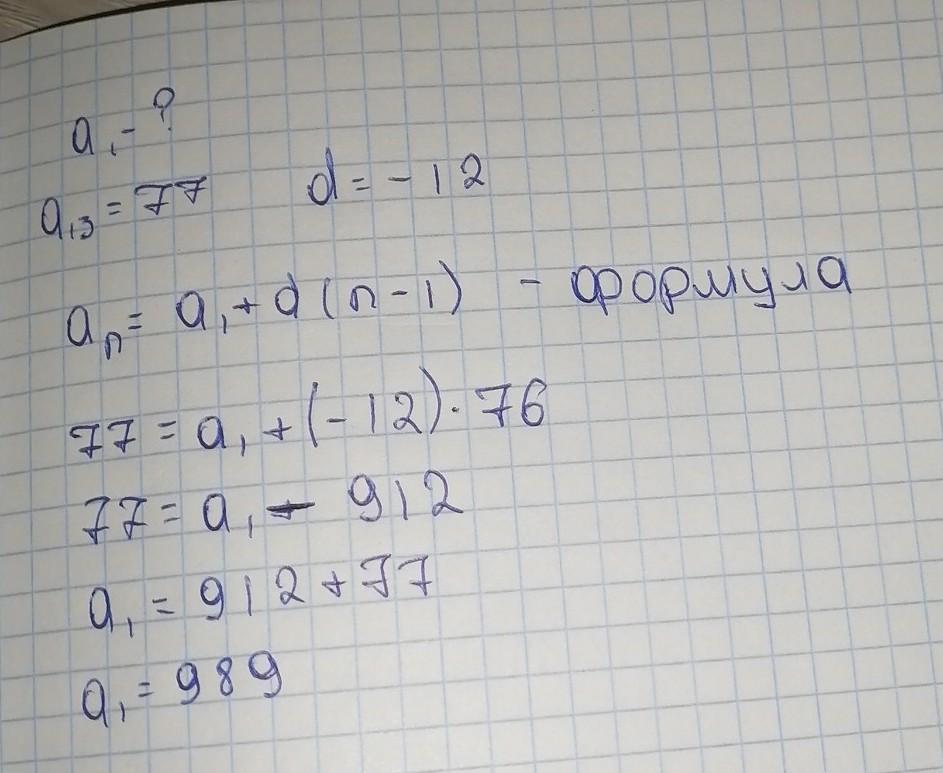 a₁ - ?
a₁₃ = 77 d = - 12
aₙ = a₁ + d (n - 1) - формула
77 = a₁ + (- 12) · 76
77 = a₁ - 912
a₁ = 912 + 77
a₁ = 989